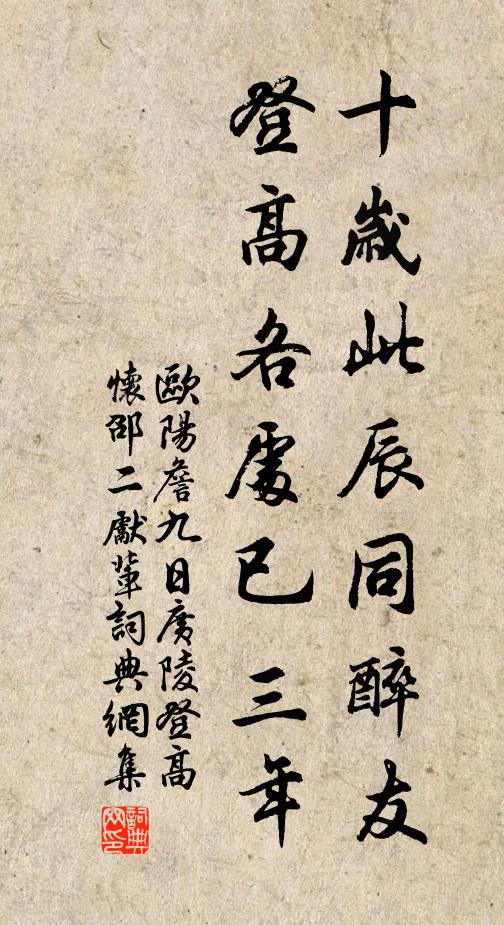 十歲此辰同醉友
登高各處已三年
歐陽詹九日廣陵登高
懷邵二獻輩詞典網集
詞典
网印